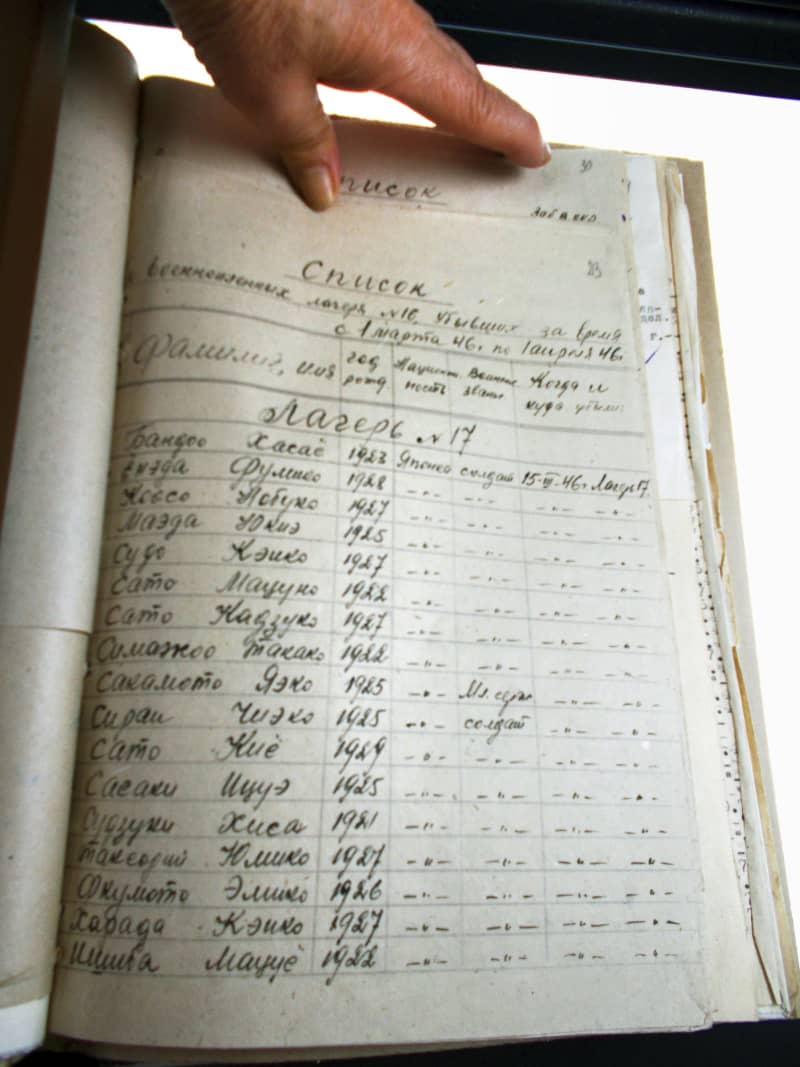 список
30
Список
23
военнопленных лагеря №16, убывших за время
с 1 марта 46г по 1 апреля 46г
Фамилия, имя год рожд. Национ. ность Воинск. звание Когда и куда убыли
Лагерь №17
Бандоо Хасаё 1923 Японка солдат 15-III-46г Лагерь 17
Фумико 1928 -„- -„- -„- -„-
Нобуко 1927 -„- -„- -„- -„-
Маэда Юкиэ 1925 -„- -„- -„- -„-
Судо Кэико 1927 -„- -„- -„- -„-
Сато Мацуно 1922 -„- -„- -„- -„-
Сато Кадзуко 1927 -„- -„- -„- -„-
Симажоо Такако 1922 -„- -„- -„- -„-
Сакамото Яэко 1925 -„- Мл. серж -„- -„-
Сираи Чиэко 1925 -„- солдат -„- -„-
Сато Киё 1929 -„- -„- -„- -„-
Сасаки Ицуэ 1925 -„- -„- -„- -„-
Судзуки Хиса 1921 -„- -„- -„- -„-
Юмико 1927 -„- -„- -„- -„-
Фкумото Эмико 1926 -„- -„- -„- -„-
Харада Кэико 1927 -„- -„- -„- -„-
Мацуё 1922 -„- -„- -„- -„-